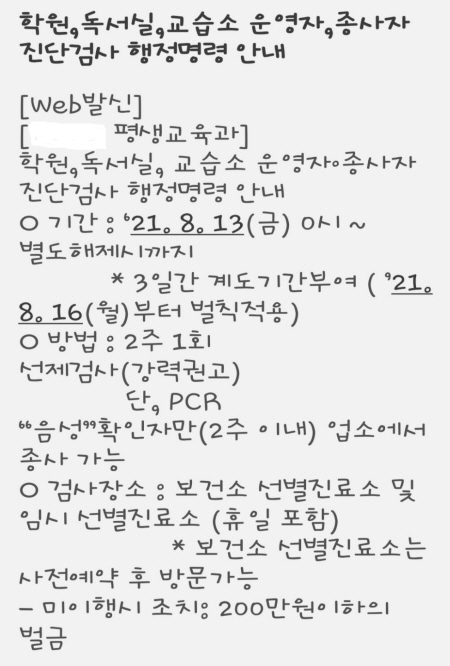 학원,독서실,교습소 운영자,종사자
진단검사 행정명령 안내
[Web발신]
[ 평생교육과]
학원,독서실, 교습소 운영자。종사자
진단검사 행정명령 안내
O 기간 : '21. 8. 13(금) 0시 ~
별도해제시까지
* 3일간 계도기간부여 ( '21.
8. 16(월)부터 벌칙적용)
O 방법 : 2주 1회
선제검사(강력권고)
단, PCR
“음성”확인자만(2주 이내) 업소에서
종사 가능
O 검사장소 : 보건소 선별진료소 및
임시 선별진료소 (휴일 포함)
* 보건소 선별진료소는
사전예약 후 방문가능
- 미이행시 조치: 200만원이하의
벌금